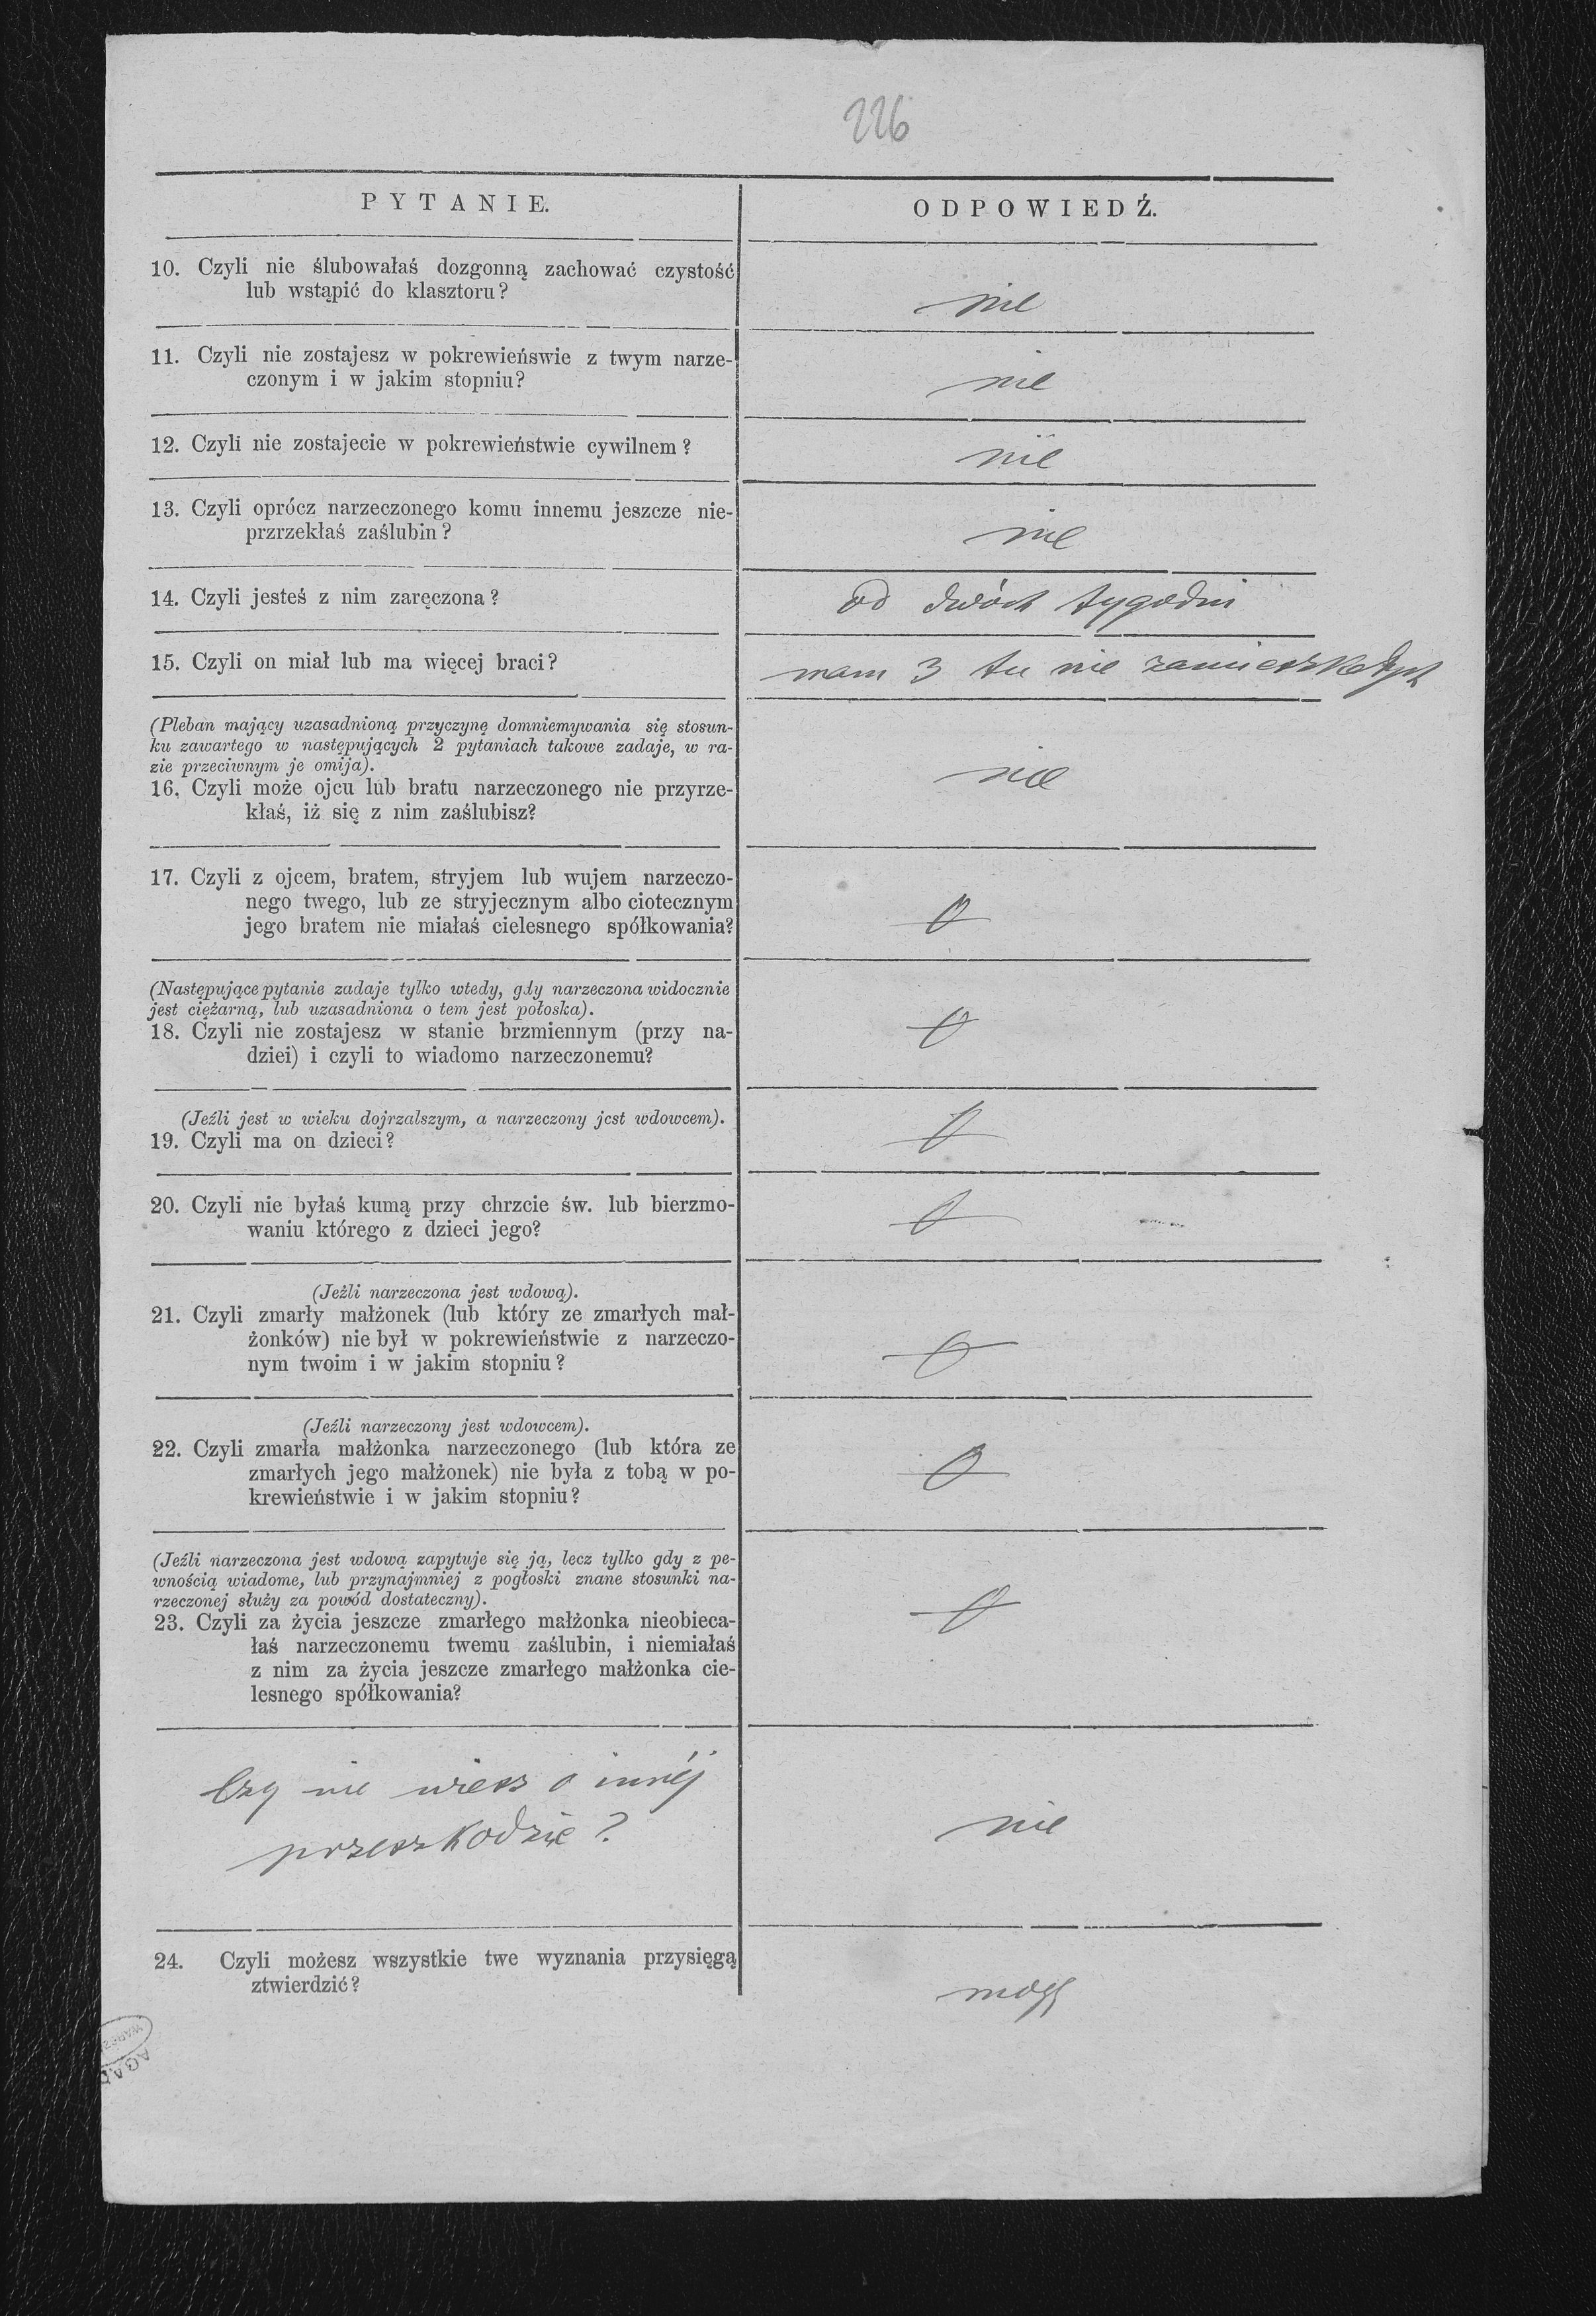 226
PYTANIE.
ODPOWIEDŹ.
10. Czyli nie ślubowałaś dozgonną zachować czystość
lub wstąpić do klasztoru?
nie
11. Czyli nie zostajesz w pokrewieńswie z twym narze-
czonym i w jakim stopniu?
nie
12. Czyli nie zostajecie w pokrewieństwie cywilnem?
nie
13. Czyli oprócz narzeczonego komu innemu jeszcze nie-
przrzekłaś zaślubin?
nie
14. Czyli jesteś z nim zaręczona?
od dwóch tygodni
15. Czyli on miał lub ma więcej braci?
mam 3 tu nie zamieszkałych
(Pleban mający uzasadnioną przyczynę domniemywania się stosun-
ku zawartego w następujących 2 pytaniach takowe zadaje, w ra-
zie przeciwnym je omija).
16. Czyli może ojcu lub bratu narzeczonego nie przyrze-
kłaś, iż się z nim zaślubisz?
nie
17. Czyli z ojcem, bratem, stryjem lub wujem narzeczo-
nego twego, lub ze stryjecznym albo ciotecznym
jego bratem nie miałaś cielesnego spółkowania?
0
(Następujące pytanie zadaje tylko wtedy, gdy narzeczona widocznie
jest ciężarną, lub uzasadniona o tem jest połoska).
18. Czyli nie zostajesz w stanie brzmiennym (przy na-
dziei) i czyli to wiadomo narzeczonemu?
0
(Jeźli jest w wieku dojrzalszym, a narzeczony jest wdowcem).
19. Czyli ma on dzieci?
0
20. Czyli nie byłaś kumą przy chrzcie św. lub bierzmo-
waniu którego z dzieci jego?
0
(Jeźli narzeczona jest wdową).
21. Czyli zmarły małżonek (lub który ze zmarłych mał-
żonków) nie był w pokrewieństwie z narzeczo-
nym twoim i w jakim stopniu?
0
(Jeźli narzeczony jest wdowcem).
22. Czyli zmarła małżonka narzeczonego (lub która ze
zmarłych jego małżonek) nie była z tobą w po-
krewieństwie i w jakim stopniu?
0
(Jeźli narzeczona jest wdową zapytuje się ją, lecz tylko gdy z pe-
wnością wiadome, lub przynajmniej z pogłoski znane stosunki na-
rzeczonej służy za powód dostateczny).
23. Czyli za życia jeszcze zmarłego małżonka nieobieca-
łaś narzeczonemu twemu zaślubin, i niemiałaś
z nim za życia jeszcze zmarłego małżonka cie-
lesnego spółkowania?
0
Czy nie wiesz o innéj
przeszkodzie?
nie
24. Czyli możesz wszystkie twe wyznania przysięgą
ztwierdzić?
mogę